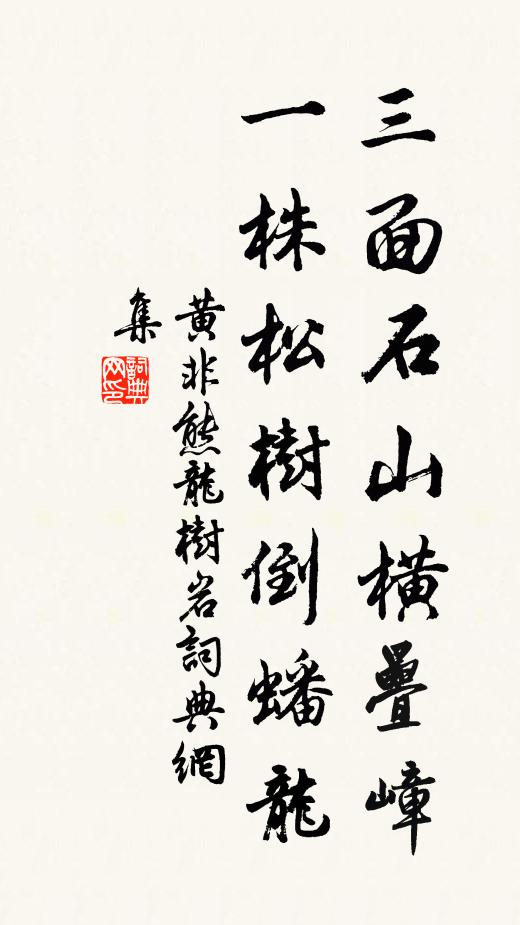 三面石山橫疊嶂
一株松樹倒蟠龍
黃非熊龍樹岩詞典網
集
詞典
网印